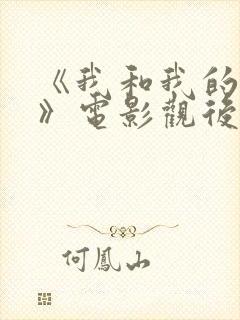 《我和我的
》電影觀後
何鳳山